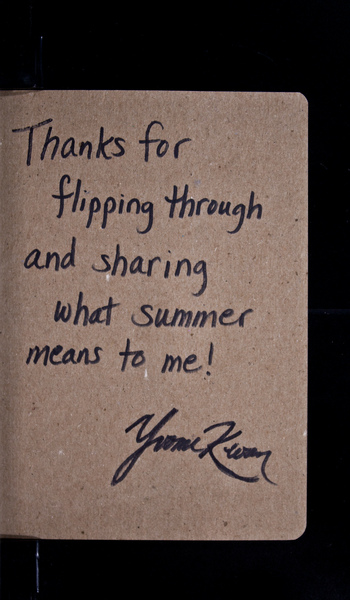 Thanks for
flipping through
and sharing
what summer
means to me!
Yvonne Kwan